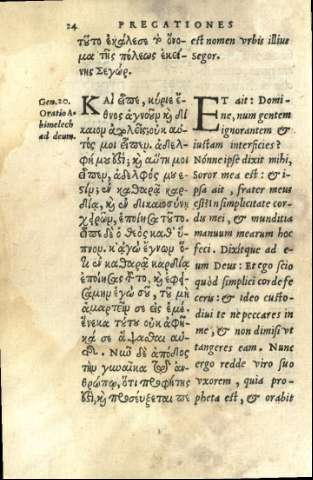 24 PRECATIONES
τοῦτο ἐκάλεσε τὸ ὄνο-
μα τῆς πόλεως ἐκεί-
νης Σεγώρ.
Gen. 20.
Oratio A-
bimelech
ad deum.
ΚΑὶ εἶπε, κύριε ἔ-
θνος ἀγνοοῦν κỳ δί
καιον ἀπολεῖς; οὐκ αὐ-
τός μοι εἶπεν, ἀδελ-
φή μου ἐστί; κỳ αὕτη μοι
εἶπεν, ἀδελφός μου ἐ-
στίν; ἐν καθαρᾷ καρ-
δίᾳ, κỳ ἐν δικαιοσύνῃ
χειρῶν, ἐποίησα τοῦτο.
εἶπε δὲ ὁ θεὸς καθ᾽ ὕ-
πνον. κἀγὼ ἔγνων ὅ-
τι ἐν καθαρᾷ καρδίᾳ
ἐποίησας τοῦτο, κỳ ἐφει-
σάμην ἐγώ σου, τοῦ μὴ
ἁμαρτεῖν σε εἰς ἐμέ.
ἕνεκα τούτου οὐκ ἀφῆ-
κά σε ἅψασθαι αὐ-
τῆς. Νῦν δὲ ἀπόδος
τὴν γυναῖκα τῷ ἀν-
θρώπῳ, ὅτι προφήτης
ἐστί, κỳ προσεύξεται πε
est nomen vrbis illius
Segor.
ET ait: Domi-
ne, num gentem
ignorantem &
iustam interficies?
Nónne ipse dixit mihi,
Soror mea est: & i-
psa ait, frater meus
est? In simplicitate cor-
dis mei, & munditia
manuum mearum hoc
feci. Dixitque ad e-
um Deus: Et ego scio
quòd simplici corde fe
ceris: & ideo custo-
diui te ne peccares in
me, & non dimisi vt
tangeres eam. Nunc
ergo redde viro suo
vxorem, quia pro-
pheta est, & orabit